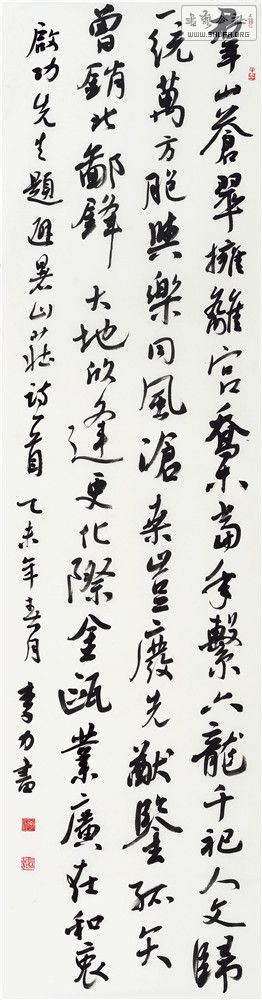 羣山蒼翠擁離宮喬木當年繫六龍千祀人文歸
一統萬方胞與樂同風滄桑豈廢先猷鑒弧矢
曾銷北鄙鋒大地欣逢更化際金甌業廣在和衷
啟功先生題避暑山莊詩一首 乙未年春月 李力書
www.SHUFA.ORG